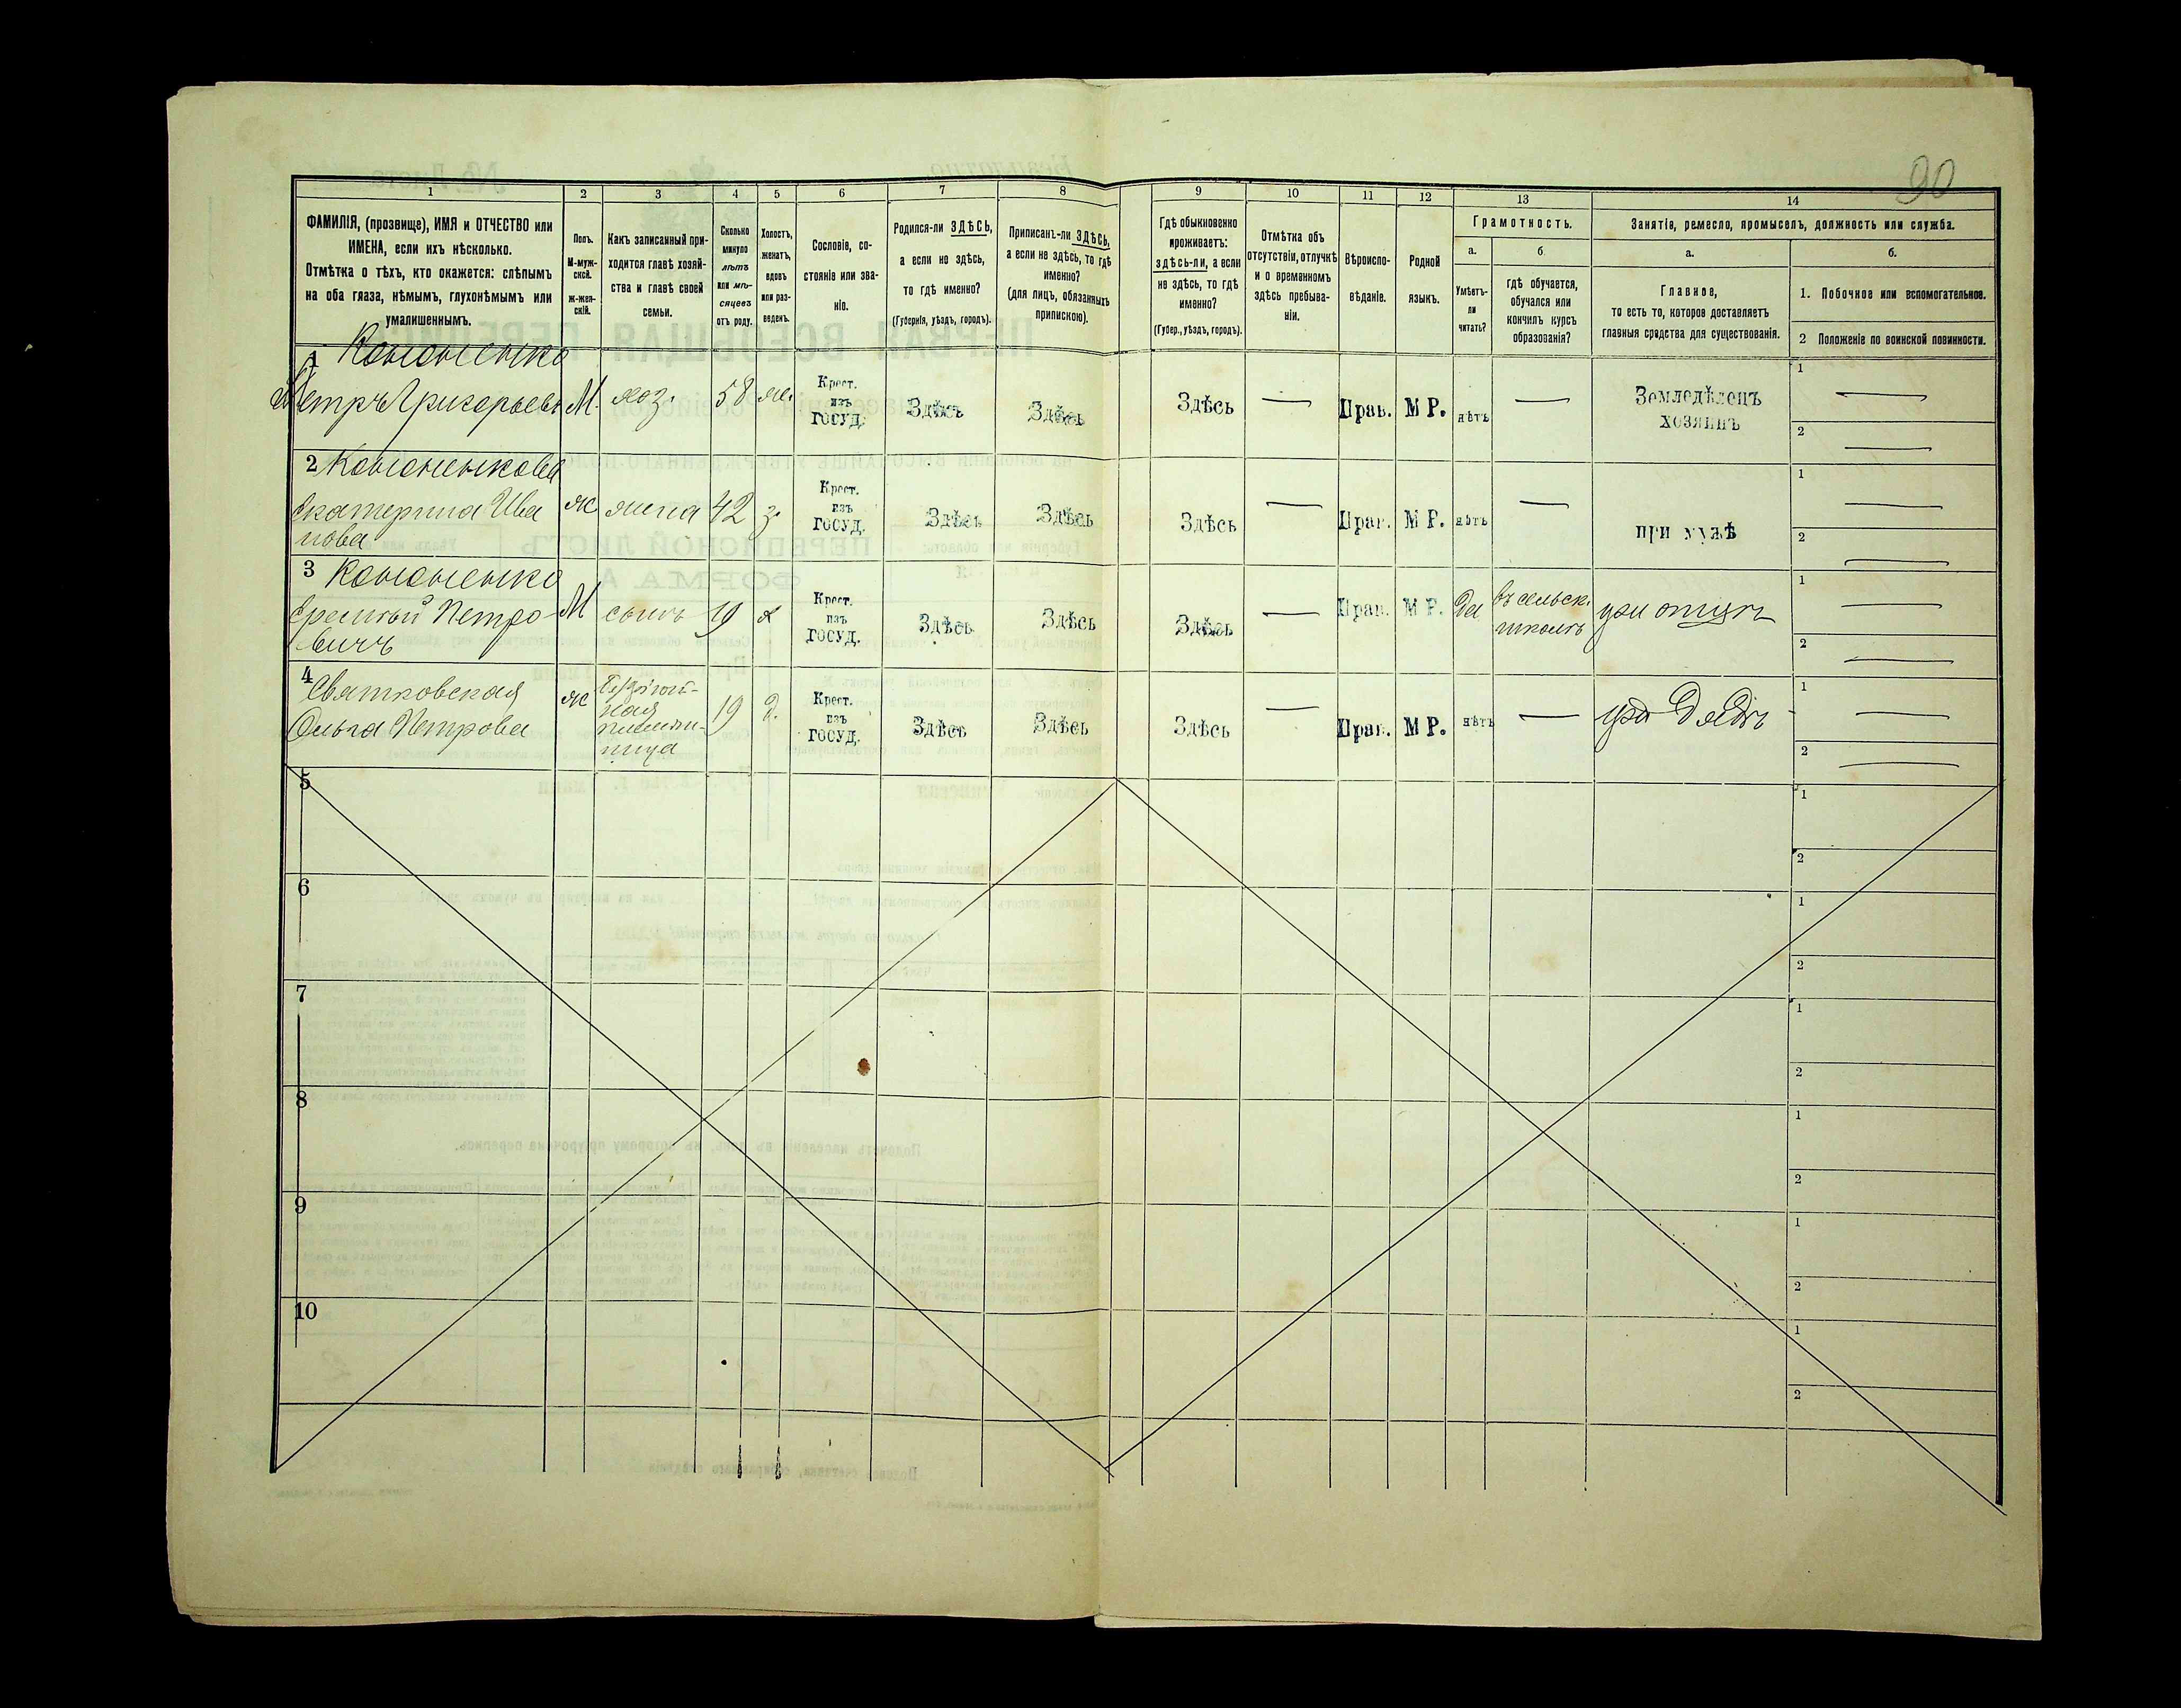 90
1 2 3 4 5 6 7 8 9 10 11 12 13 14
ФАМИЛІЯ, (прозвище), ИМЯ и ОТЧЕСТВО или
ИМЕНА, если ихъ нѣсколько.
Отмѣтка о тѣхъ, кто окажется: слѣпымъ
на оба глаза, нѣмымъ, глухонѣмымъ или
умалишеннымъ.
Полъ.
М-муж-
ской.
ж-жен-
скій.
Какъ записанный при-
ходится главѣ хозяй-
ства и главѣ своей
семьи.
Сколько
минуло
лѣтъ
или мѣ-
сяцевъ
отъ роду.
Холостъ,
женатъ,
вдовъ
или раз-
веденъ.
Сословіе, со-
стояніе или зва-
ніе.
Родился-ли ЗДѢСЬ,
а если не здѣсь,
то гдѣ именно?
(Губернія, уѣздъ, городъ).
Приписанъ-ли ЗДѢСЬ,
а если не здѣсь, то гдѣ
именно?
(для лицъ, обязанныхъ
припискою).
Гдѣ обыкновенно
проживаетъ:
здѣсь-ли, а если
не здѣсь, то гдѣ
именно?
(Губер., уѣздъ, городъ).
Отмѣтка объ
отсутствіи, отлучкѣ
и о временномъ
здѣсь пребыва-
ніи.
Вѣроиспо-
вѣданіе.
Родной
языкъ.
Грамотность.
а.
Умѣетъ-
ли
читать?
б
гдѣ обучается,
обучался или
кончилъ курсъ
образованія?
Занятіе, ремесло, промыселъ, должность или служба.
а.
Главное,
то есть то, которое доставляетъ
главныя средства для существованія.
б.
1. Побочное или вспомогательное.
2 Положеніе по воинской повинности.
1 Кононенко
Петръ Григорьевъ
М.
хоз.
58
ж.
Крест.
изъ
ГОСУД.
Здѣсь
Здѣсь
Здѣсь
—
Прав.
М Р.
нѣтъ
—
Земледѣлецъ
хозяинъ
1 —
2 —
2 Кононенкова
Екатерина Ива
нова
ж
жена
42
з.
Крест.
изъ
ГОСУД.
Здѣсь
Здѣсь
Здѣсь
—
Прав.
М Р.
нѣтъ
—
при мужѣ
1 —
2 —
3 Кононенко
Еремѣй Петро-
вичъ
М
сынъ
19
х
Крест.
изъ
ГОСУД.
Здѣсь
Здѣсь
Здѣсь
—
Прав.
М Р.
да
въ сельск.
школѣ
при отцѣ
1 —
2 —
4
Святковская
Ольга Петрова
ж
19
д.
Крест.
изъ
ГОСУД.
Здѣсь
Здѣсь
Здѣсь
—
Прав.
М Р.
нѣтъ
—
при дядѣ
1 —
2 —
5
1
2
6
1
2
7
1
2
8
1
2
9
1
2
10
1
2